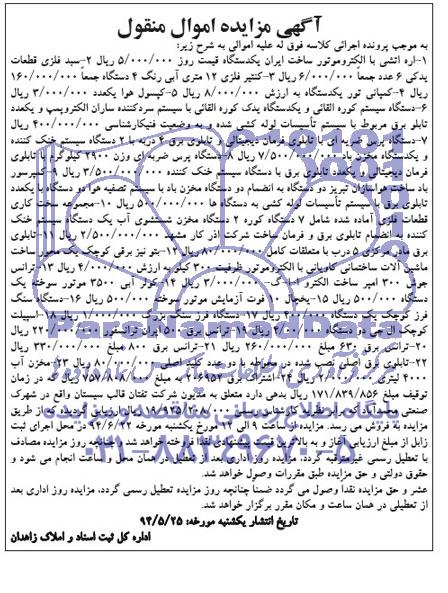 آگهی مزایده اموال منقول
به موجب پرونده اجرائی کلاسه فوق له علیه اموالی به شرح زیر:
۱-اره آتشی با الکتروموتور ساخت ایران یکدستگاه قیمت روز ۵/۰۰۰/۰۰۰ ریال ۲-سبد فلزی قطعات
یدکی ۶ عدد جمعاً ۶/۰۰۰/۰۰۰ ریال ۳-کنتیر فلزی ۱۲ متری آبی رنگ ۴ دستگاه جمعاً ۱۶۰/۰۰۰/۰۰۰
ریال ۴-کمپانی تور یکدستگاه به ارزش ۸/۰۰۰/۰۰۰ ریال ۵-کپسول هوا یکعدد ۳/۰۰۰/۰۰۰ ریال
۶-دستگاه سیستم کوره القائی و یکدستگاه یدک کوره القائی با سیستم سردکننده ساران الکتروپمپ و یکعدد
تابلو برق مربوط با سیستم تأسیسات لوله کشی شده و به وضعیت فنیکارشناسی ۴۰۰/۰۰۰/۰۰۰ ریال
۷-دستگاه پرس ضربه ای با تابلوی فرمان دیجیتالی و تابلوی برق ۶ دربه با ۲ دستگاه سیستم خنک کننده
و یکدستگاه مخزن باد ۷/۵۰۰/۰۰۰/۰۰۰ ریال ۸-دستگاه پرس ضربه ای وزن ۲۹۰۰ کیلوگرم با تابلوی
دیجیتالی یکعدد تابلوی برق با دستگاه سیستم خنک کننده ۳/۵۰۰/۰۰۰/۰۰۰ ریال ۹-کمپرسور
باد ساخت هواسازان تبریز دو دستگاه به انضمام دو دستگاه مخزن باد با سیستم تصفیه هوا دو دستگاه با یکعدد
تابلوی برق با سیستم تأسیسات لوله کشی به دستگاه ها ۵۰۰/۰۰۰/۰۰۰ ریال ۱۰-مجموعه سخت کاری
قطعات فلزی آماده شده شامل ۷ دستگاه کوره ۲ دستگاه مخزن شستشوی آب یک دستگاه سیستم خنک
کننده به انضمام تابلوی برق و فرمان ساخت شرکت آذر کار مشهد ۲/۵۰۰/۰۰۰/۰۰۰ ریال ۱۱-تابلوی
برق مادر مرکزی ۵ درب با متعلقات کامل ۸۰/۰۰۰/۰۰۰ ریال ۱۲-بتو نیز برقی کوچک یک محور ساخت
ماشین آلات ساختمانی کاویانی با الکتروموتور ظرفیت ۳۰۰ کیلو به ارزش ۴/۰۰۰/۰۰۰ ریال ۱۳-ترانس
جوش ۳۰۰ آمپر ساخت الکترو ۳/۰۰۰/۰۰۰ ریال ۱۴-کولر آبی ۳۵۰۰ موتور سوخته یک
دستگاه ۵۰۰/۰۰۰ ریال ۱۵-یخچال ۱۰ فوت آزمایش موتور سوخته ۵۰۰/۰۰۰ ریال ۱۶-دستگاه سنگ
فرز کوچک یک دستگاه ۲۰۰/۰۰۰ ریال ۱۷-دستگاه فرز سنگ بزرگ ۱/۰۰۰/۰۰۰ ریال ۱۸-اسپیلت
کوچک ال جی دو دستگاه ۴/۰۰۰/۰۰۰ ریال ۱۹-ترانس برق ۵۰۰ ایران ترانسفور ۲۲۰/۰۰۰/۰۰۰ ریال
۲۰-ترانس برق ۶۳۰ مبلغ ۲۶۰/۰۰۰/۰۰۰ ریال ۲۱-ترانس برق ۸۰۰ مبلغ ۳۳۰/۰۰۰/۰۰۰ ریال
۲۲-تابلوی برق اصلی نصب شده در محوطه با دو عدد کلید اصلی ۸۰/۰۰۰/۰۰۰ ریال ۲۳-مخزن آب
۴۰۰۰ لیتری ۲/۰۰۰/۰۰۰ ریال ۲۴-اشتراک برق به مبلغ ۷۵۷/۸۰۸/۰۰۰ ریال که در زمان
توقیف مبلغ ۱۷۱/۸۳۹/۸۵۶ ریال بدهی دارد متعلق به مدیون شرکت تفتان قالب سیستان واقع در شهرک
صنعتی محمدآباد که از نظریه کارشناس رسمی ریال ارزیابی گردیده که از طریق
مزایده به فروش می رسد. مزایده از ساعت ۹ الی ۱۲ مورخ یکشنبه مورخه ۹۴/۶/۲۲ در محل اجرای ثبت
زابل از مبلغ ارزیابی آغاز و به بالاترین قیمت پیشنهادی نقداً فروخته خواهد شد و چنانچه روز مزایده مصادف
با تعطیل رسمی غیرمترقبه گردد، مزایده روز اداری بعد از تعطیلی در همان محل و ساعت انجام می شود و
حقوق دولتی و حق مزایده طبق مقررات وصول خواهد شد.
عشر و حق مزایده نقداً وصول می گردد ضمناً چنانچه روز مزایده تعطیل رسمی گردد، مزایده روز اداری بعد
از تعطیلی در همان ساعت و مکان مقرر برگزار خواهد شد.
تاریخ انتشار یکشنبه مورخه: ۹۴/۵/۲۵
اداره کل ثبت اسناد و املاک زاهدان
ParsNamadData
۰۲۱-۸۸۳۴۹۶۷۰-۵